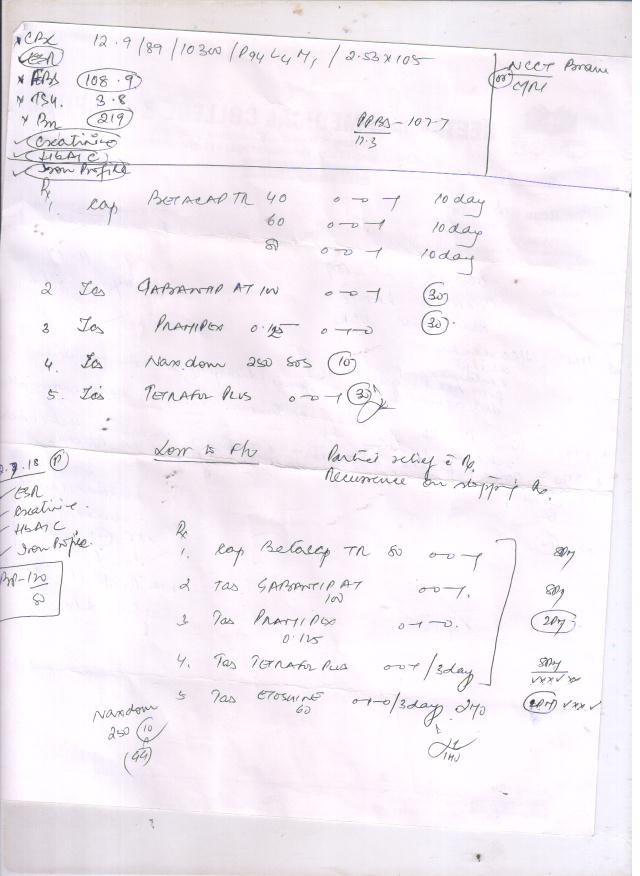 CBC 12.9/89/10300/P94 L4 M1/2.53x105
ESR
FBS 108.9
TSH. 3.8
219
Creatinine
HbA1C
Iron Profile
NCCT Brain
or
PPBS - 107.7
17.3
Rx
1. cap BETACAP TR 40 0-0-1 10 day
60 0-0-1 10 day
80 0-0-1 10 day
2 Tab GABANTIP AT 100 0-0-1 30
3 Tab PRAMIPEX 0.125 0-1-0 30
4. Tab Naxdom 250 SOS 10
5. Tab TETRAFOL PLUS 0-0-1 30
Loss to F/u
Partial relief c Rx.
Recurrence on stopping Rx.
.18
ESR
Creatinine
HbA1C
Iron Profile
BP-120
80
Rx
1. cap Betacap TR 80 0-0-1
2 Tab GABANTIP AT 0-0-1.
100
3 Tab PRAMIPEX 0-1-0.
0.125
4. Tab TETRAFOL PLUS 0-0-1/3day
5 Tab ETOSHINE 0-1-0/3day
60
Naxdom
250 10
44